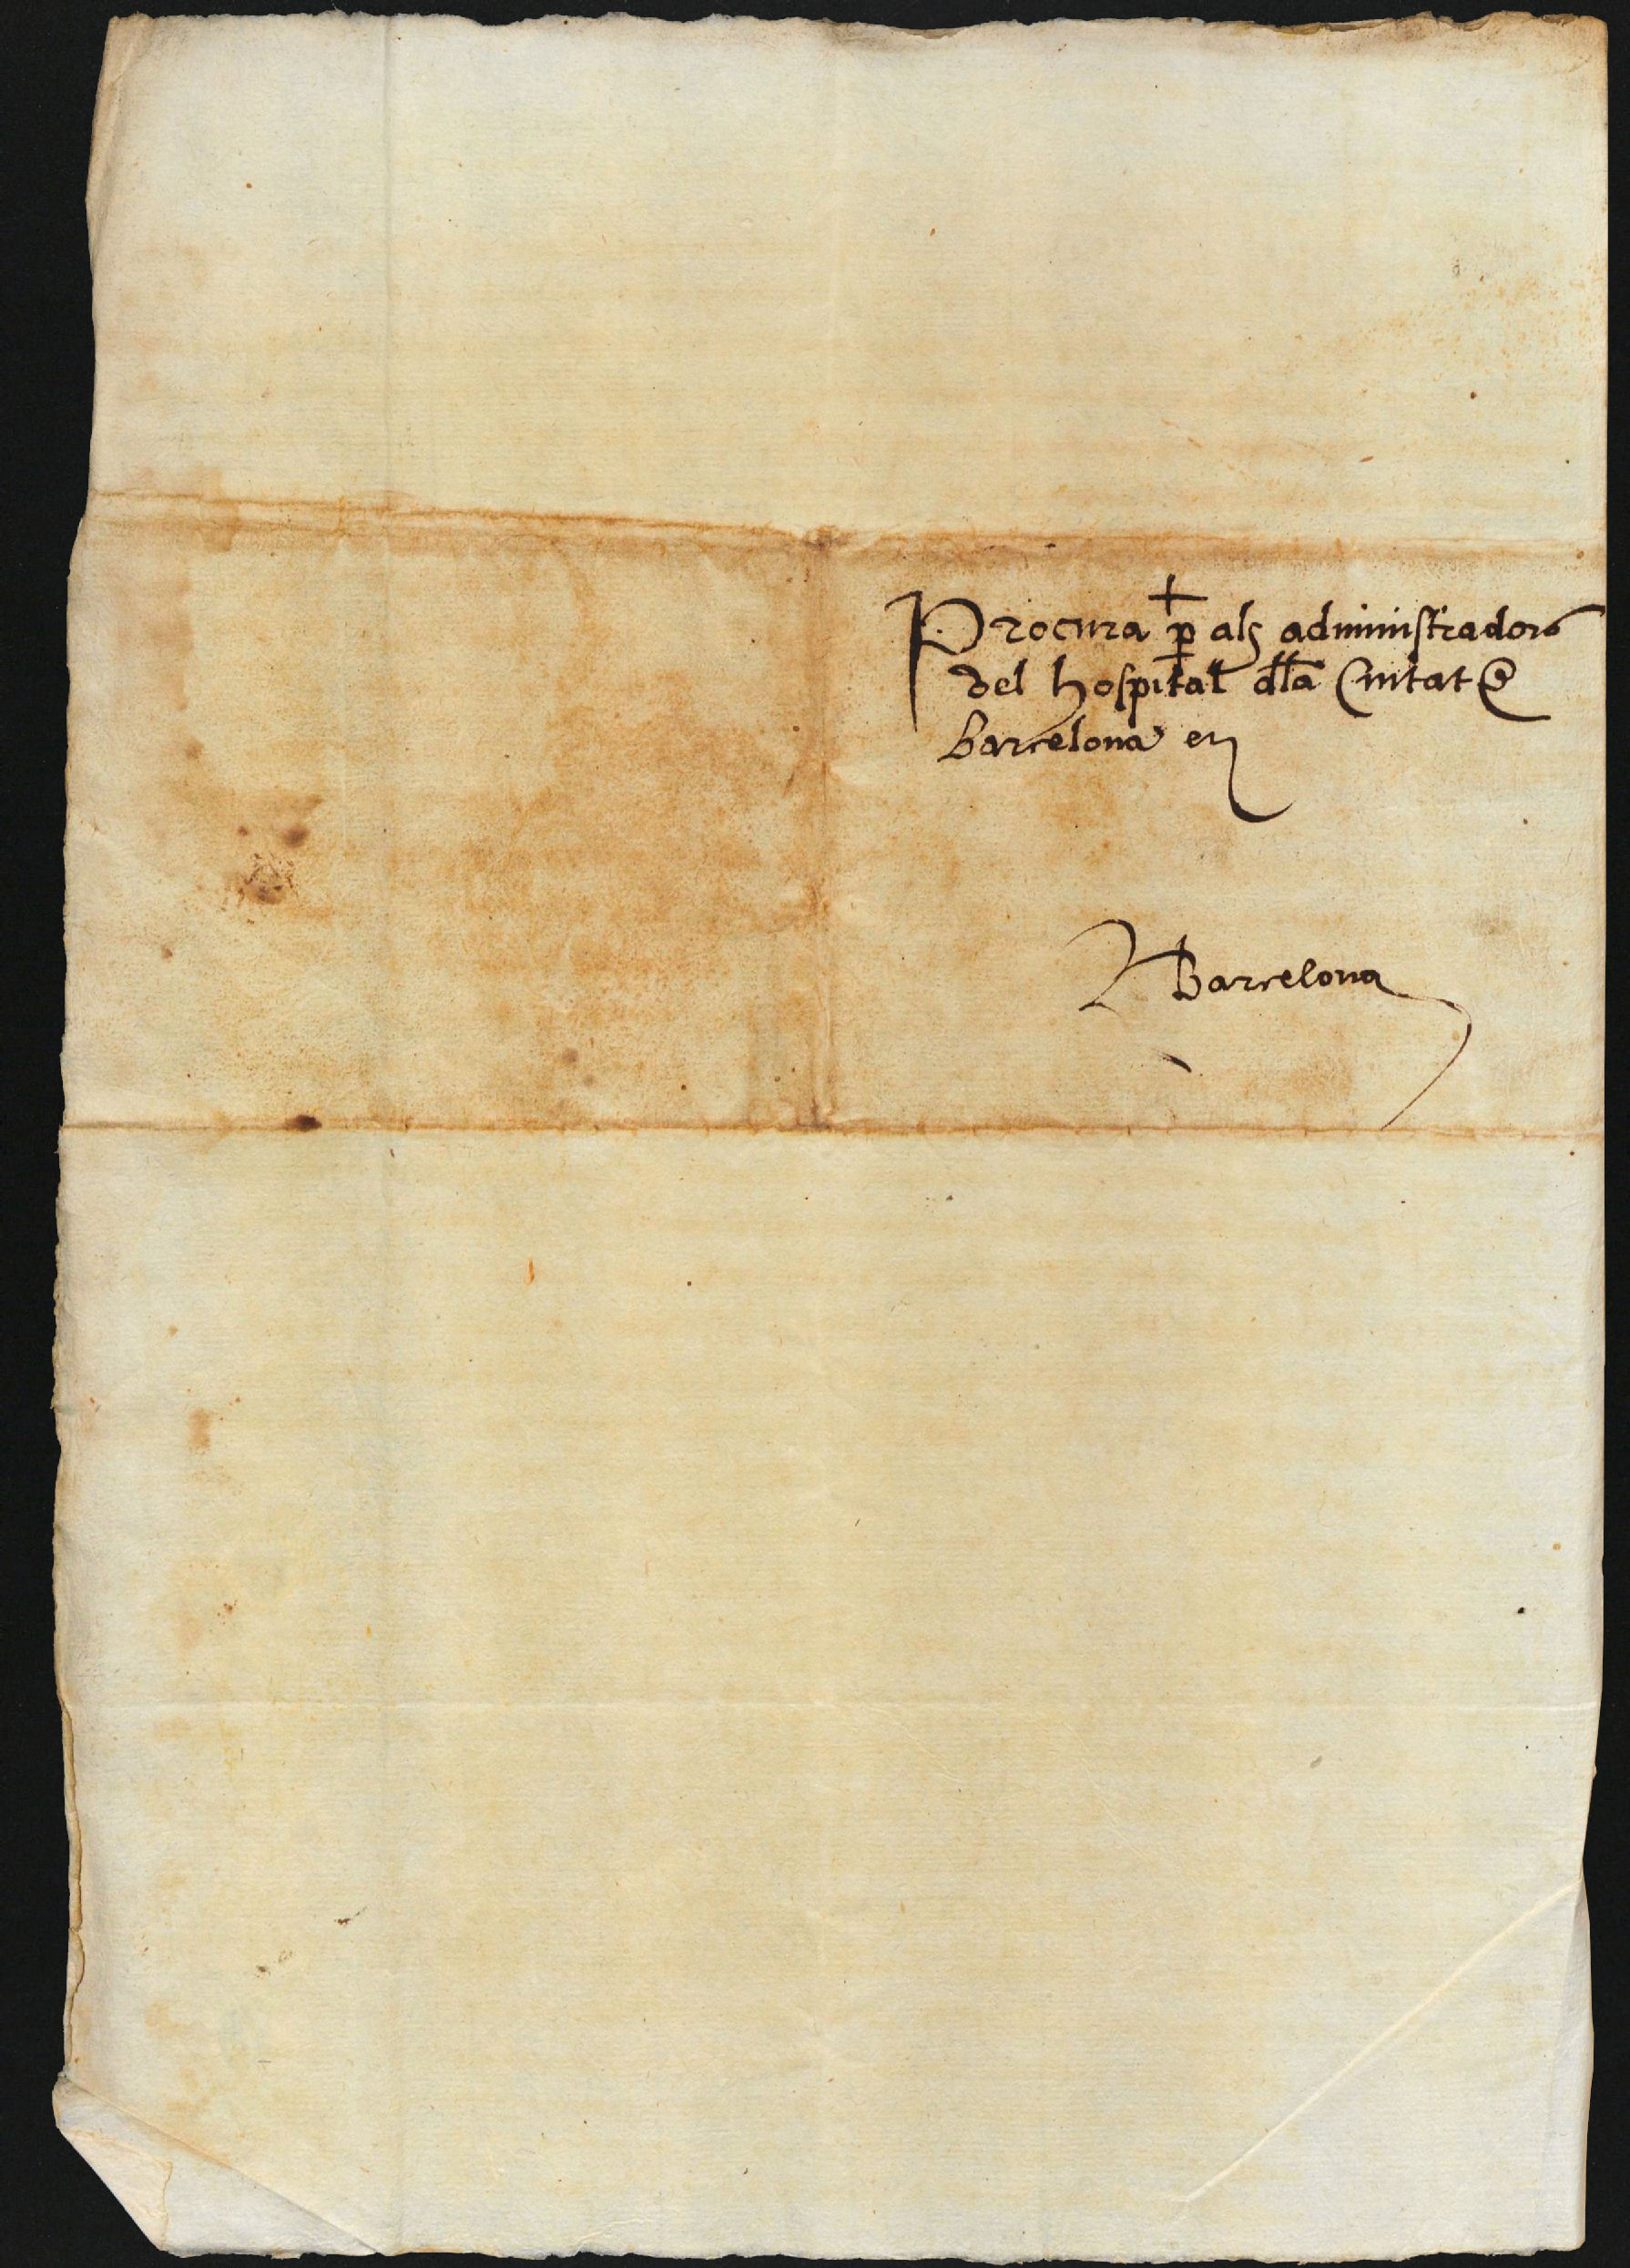 +
Procura p als administradors
del hospital dla Ciutat de
Barcelona en
Barcelona